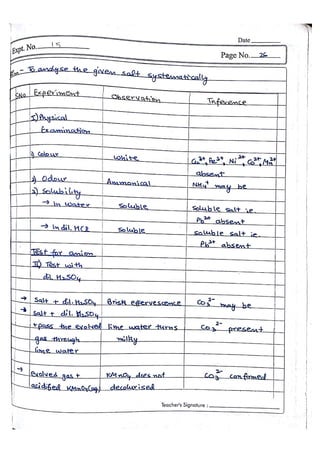 Date
Expt. No. 15
Page No. 26
Aim - To analyse the given salt systematically
SNo Experiment Observation Inference
I) Physical
Examination
1) Colour White Cu²⁺, Fe²⁺, Ni²⁺, Co²⁺, Mn²⁺
absent
2) Odour Ammonical NH₄⁺ may be
3) Solubility
→ In water Soluble Soluble salt ie.
Pb²⁺ absent
→ In dil. HCl Soluble soluble salt ie.
Pb²⁺ absent
Test for anion
II) Test with
dil. H₂SO₄
→ Salt + dil. H₂SO₄ Brisk effervescence CO₃²⁻ may be
→ Salt + dil. H₂SO₄
+ pass the evolved lime water turns CO₃²⁻ present
gas through milky
lime water
→ evolved gas + KMnO₄ does not CO₃²⁻ confirmed
acidified KMnO₄(aq) decolurised
Teacher's Signature :